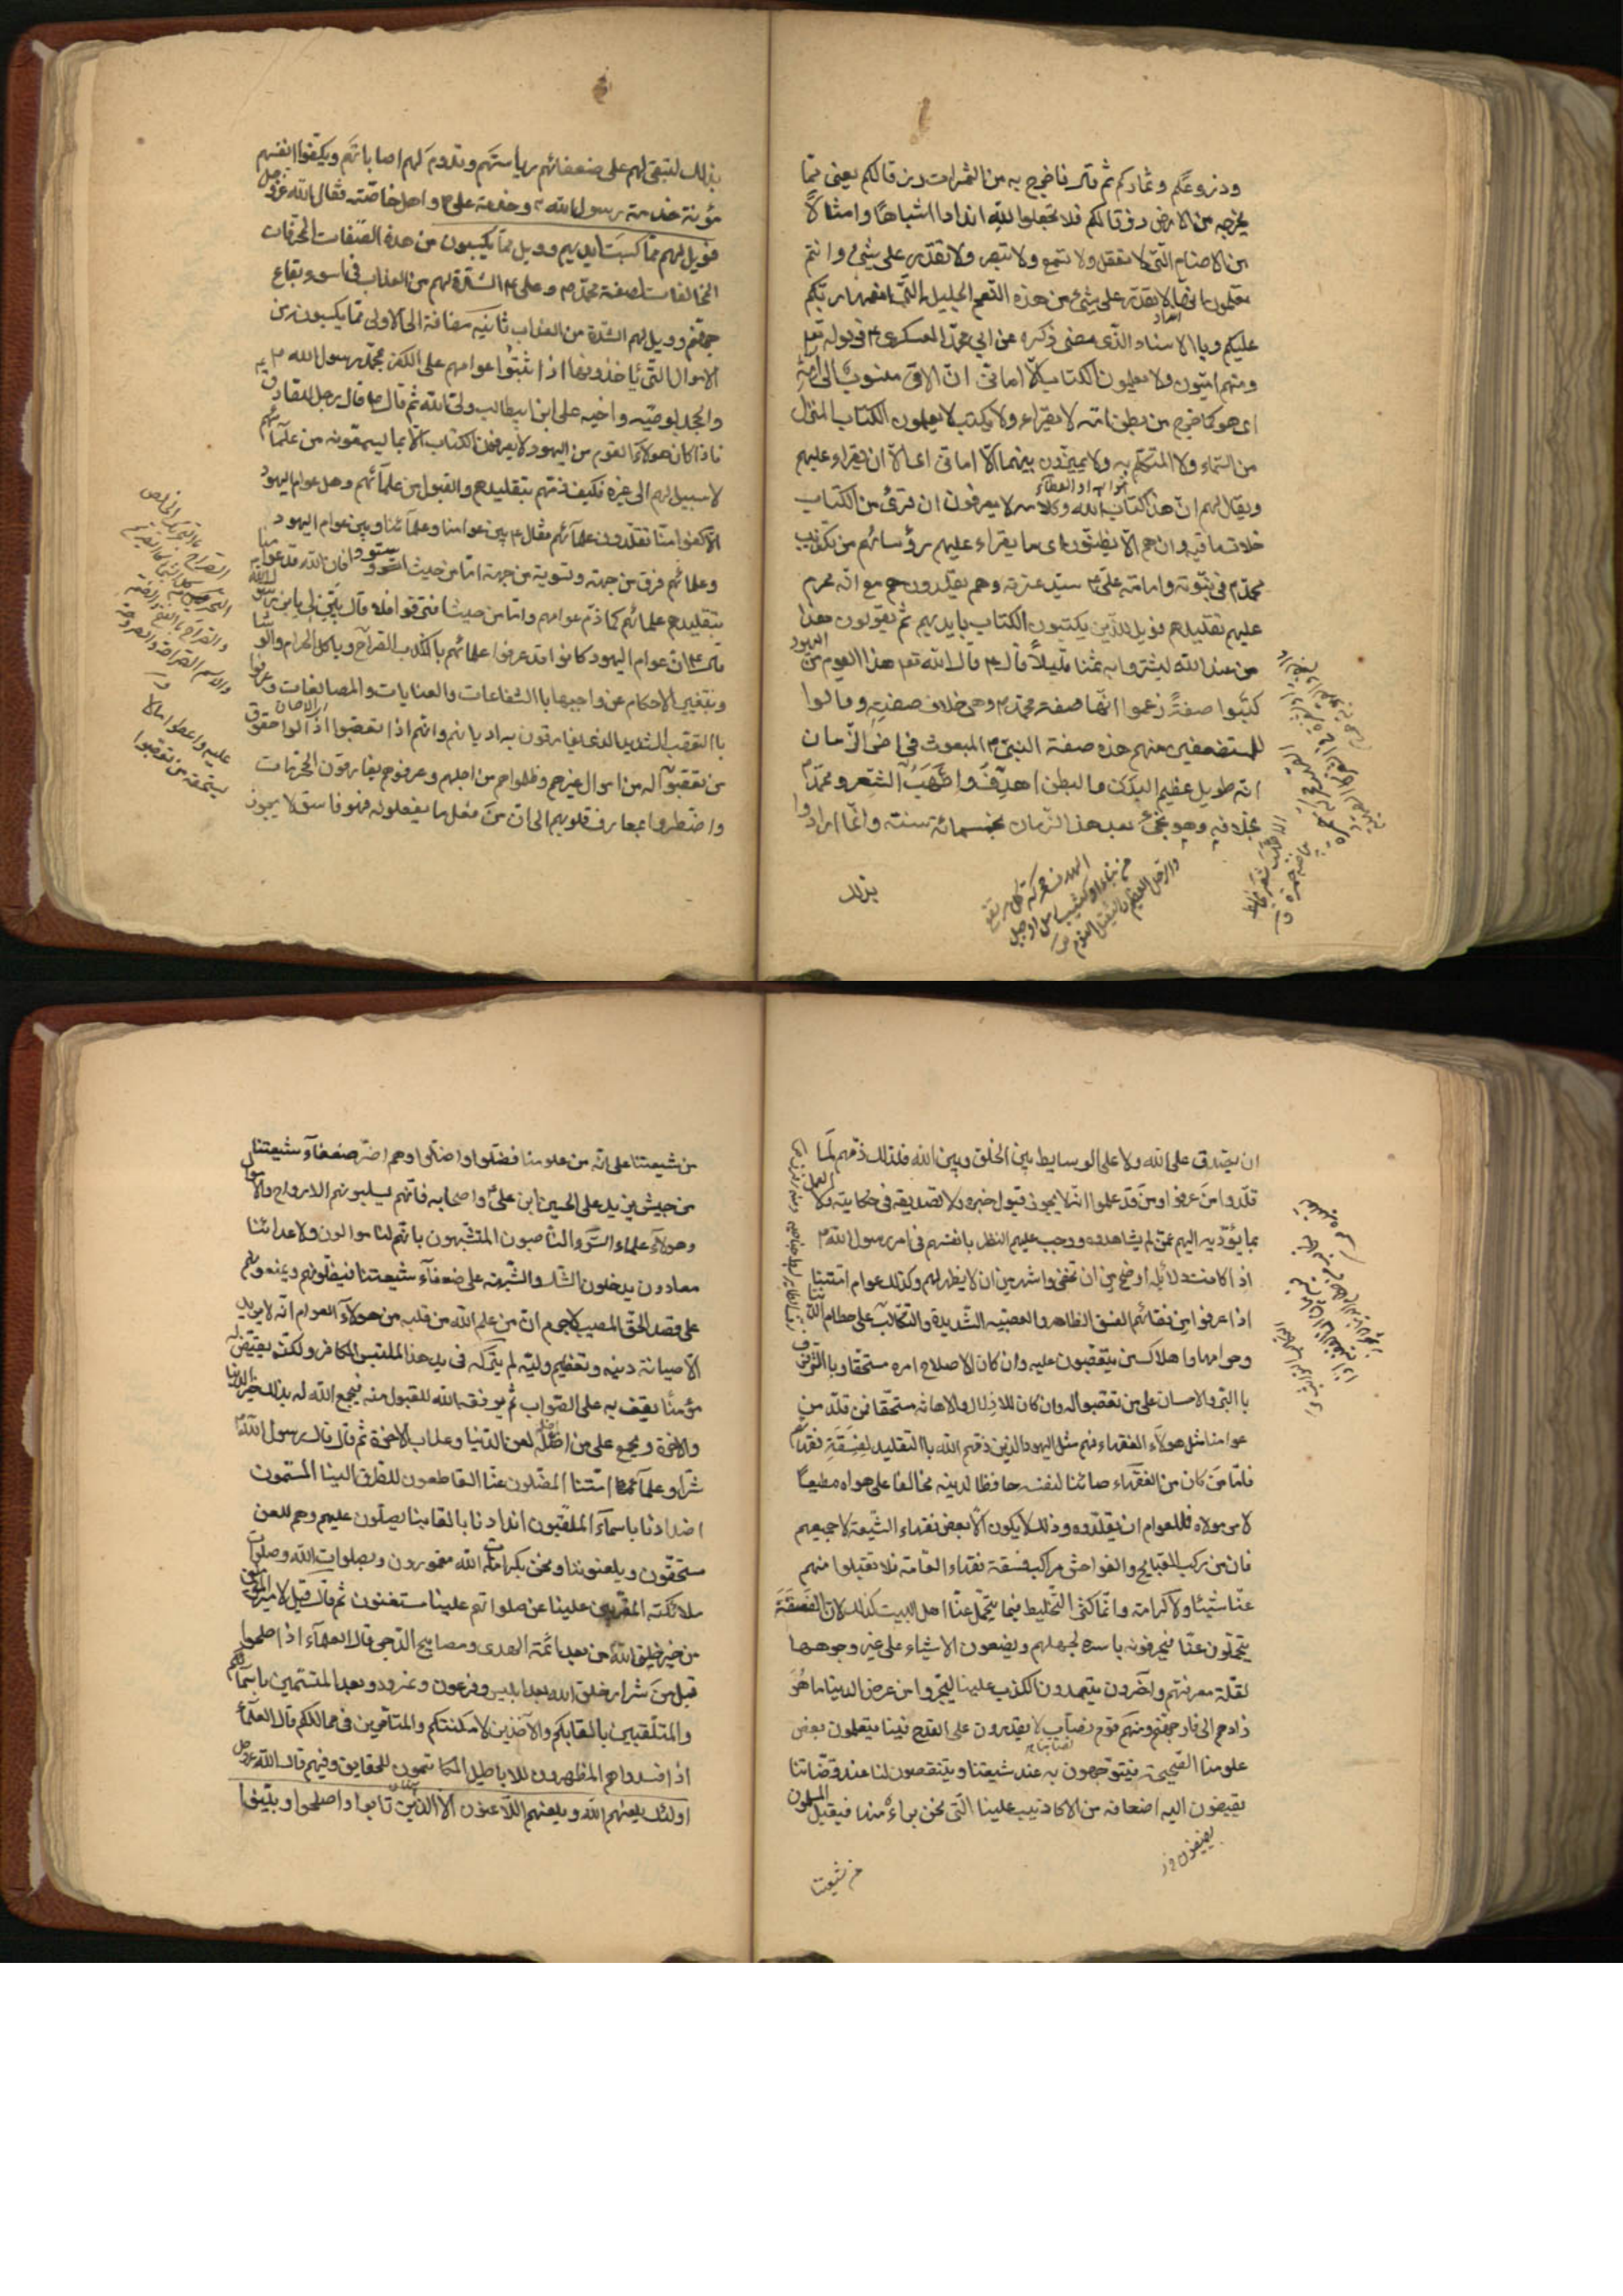 وزروعكم وثماركم ثم قال فاخرج به من الثمرات رزقا لكم يعنى مما
يخرجه من الارض رزقا لكم فلا تجعلوا لله اندادا اشباها وامثالا
من الاصنام التى لا تعقل ولا تسمع ولا تبصر ولا تقدر على شئ وانتم
تعلمون انها لا تقدر على شئ من هذه النعم الجليلة التى انعمها ربكم
عليكم وبالاسناد الذى مضى ذكره عن ابى محمد العسكرى ع فى قوله تعا
ومنهم اميون لا يعلمون الكتاب الا امانى ان الامى منسوب الى امه
اى هو كما خرج من بطن امه لا يقراء ولا يكتب لا يعلمون الكتاب المنزل
من السماء ولا المتكلم به ولا يميزون بينهما الا امانى اى الا ان يقراء عليهم
ويقال لهم ان هذا كتاب الله وكلامه لا يعرفون ان قرئ من الكتاب
خلاف ما فيه وان هم الا يظنون اى ما يقراء عليهم رؤسائهم من تكذيب
محمد ص فى نبوته وامامة على ع سيد عترته وهم يقلدونهم مع انه محرم
عليهم تقليدهم فويل للذين يكتبون الكتاب بايديهم ثم يقولون هذا
من عند الله ليشتروا به ثمنا قليلا قال ع قال الله تعا هذا القوم من اليهود
كتبوا صفة زعموا انها صفة محمد ص وهى خلاف صفته وقالوا
للمستضعفين منهم هذه صفة النبى ص المبعوث فى اخر الزمان
انه طويل عظيم البدن والبطن اهدف واصهب الشعر ومحمد ص
بخلافه وهو يجئ بعد هذا الزمان بخمسمائة سنة وانما ارادوا
بذلك
بذلك لتبقى لهم على ضعفائهم رياستهم وتدوم لهم اصاباتهم ويكفوا انفسهم
مؤنة خدمة رسول الله ص وخدمة على ع واهل خاصته فقال الله عز وجل
فويل لهم مما كتبت ايديهم وويل لهم مما يكسبون من هذه الصفات المحرفات
المخالفات لصفة محمد ص وعلى ع الشدة لهم من العذاب فى اسوء بقاع
جهنم وويل لهم الشدة من العذاب ثانية مضافة الى الاولى مما يكسبون من
الاموال التى ياخذونها اذا ثبتوا عوامهم على الكفر بمحمد رسول الله ص
والجحد لوصيه واخيه على ابن ابيطالب ولى الله ثم قال ع قال رجل للصادق ع
فاذا كان هولاء القوم من اليهود لا يعرفون الكتاب الا بما يسمعونه من علمائهم
لا سبيل لهم الى غيره فكيف ذمهم بتقليدهم والقبول من علمائهم وهل عوام اليهود
الا كعوامنا تقلدون علمائهم فقال ع بين عوامنا وعلمائنا وبين عوام اليهود
وعلمائهم فرق من جهة وتسوية من جهة اما من حيث استووا فان الله قد ذم عوامنا
بتقليدهم علمائهم كما ذم عوامهم واما من حيث افترقوا فلا قال بين لى يابن رسول الله
قال ع ان عوام اليهود كانوا قد عرفوا علمائهم بالكذب الصراح وباكل الحرام والرشا
وبتغيير الاحكام عن واجبها بالشفاعات والعنايات والمصانعات وعرفوا
بالتعصب الشديد الذى يفارقون به اديانهم وانهم اذا تعصبوا ازالوا حقوق
من تعصبوا له من اموال غيرهم وظلموهم من اجلهم وعرفوهم يقارفون المحرمات
واضطروا بمعارف قلوبهم الى ان من فعل ما يفعلونه فهو فاسق لا يجوز
ان يصدق على الله ولا على الوسايط بين الخلق وبين الله فلذلك ذمهم لما
قلدوا من عرفوا ومن قد علموا انه لا يجوز قبول خبره ولا تصديقه فى حكايته ولا العمل
بما يؤديه اليهم عمن لم يشاهدوه ووجب عليهم النظر بانفسهم فى امر رسول الله ص
اذ كانت دلائله اوضح من ان تخفى واشهر من ان لا يظهر لهم وكذلك عوام امتنا
اذا عرفوا من فقهائهم الفسق الظاهر والعصبية الشديدة والتكالب على حطام الدنيا
وحرامها واهلاك من يتعصبون عليه وان كان لاصلاح امره مستحقا وبالترفرف
بالبر والاحسان على من تعصبوا له وان كان للاذلال والاهانة مستحقا فمن قلد من
عوامنا مثل هولاء الفقهاء فهم مثل اليهود الذين ذمهم الله بالتقليد لفسقة فقهائهم
فاما من كان من الفقهاء صائنا لنفسه حافظا لدينه مخالفا على هواه مطيعا
لامر مولاه فللعوام ان يقلدوه وذلك لا يكون الا بعض فقهاء الشيعة لا جميعهم
فان من ركب القبايح والفواحش مراكب فسقة فقهاء العامة فلا تقبلوا منهم
عنا شيئا ولا كرامة وانما كثر التخليط فيما يتحمل عنا اهل البيت كذلك لان الفسقة
يتحملون عنا فيحرفونه باسره لجهلهم ويضعون الاشياء على غير وجوهها
لقلة معرفتهم وآخرون يتعمدون الكذب علينا ليجروا من عرض الدنيا ما هو
زادهم الى نار جهنم ومنهم قوم نصاب لا يقدرون على القدح فينا يتعلمون بعض
علومنا الصحيحة فيتوجهون به عند شيعتنا ويتنقصون لنا عند نصابنا
يضيفون اليه اضعافه من الاكاذيب علينا التى نحن براء منها فيقبله المسلمون
من شيعتنا
من شيعتنا على انه من علومنا فضلوا واضلوا وهم اضر ضعفاء شيعتنا
من جيش يزيد على الحسين ابن على ع واصحابه فانهم يسلبونهم الارواح والاموال
وهولاء علماء السوء الناصبون المتشبهون بانهم لنا موالون ولاعدائنا
معادون يدخلون الشك والشبهة على ضعفاء شيعتنا فيضلونهم ويمنعونهم
على قصد الحق المصيب لا جرم ان من علم الله من قلبه من هولاء العوام انه لا يريد
الا صيانة دينه وتعظيم وليه لم يتركه فى يد هذا الملتبس الكافر ولكنه يقيض له
مؤمنا يقف به على الصواب ثم يوفقه الله للقبول منه فيجمع الله له بذلك خير الدنيا
والاخرة ويجمع على من اضله لعن الدنيا وعذاب الاخرة ثم قال قال رسول الله ص
شرار علماء امتنا المضلون عنا القاطعون للطرق الينا المسمون
اضدادنا باسماء الملقبون اندادنا بالقابنا يصلون عليهم وهم للعن
مستحقون ويلعنوننا ونحن بكرامات الله مغمورون وبصلوات الله وصلوات
ملائكته المقربين علينا عن صلواتهم علينا مستغنون ثم قال قيل لامير المؤمنين
من خير خلق الله من بعد ائمة الهدى ومصابيح الدجى قال العلماء اذا صلحوا
قيل من شرار خلق الله بعد ابليس وفرعون ونمرود وبعد المتسمين باسمائكم
والمتلقبين بالقابكم والآخذين لامكنتكم والمتامرين فى ممالككم قال العلماء
اذا فسدوا هم المظهرون للاباطيل الكاتمون للحقايق وفيهم قال الله عز وجل
اولئك يلعنهم الله ويلعنهم اللاعنون الا الذين تابوا واصلحوا وبينوا